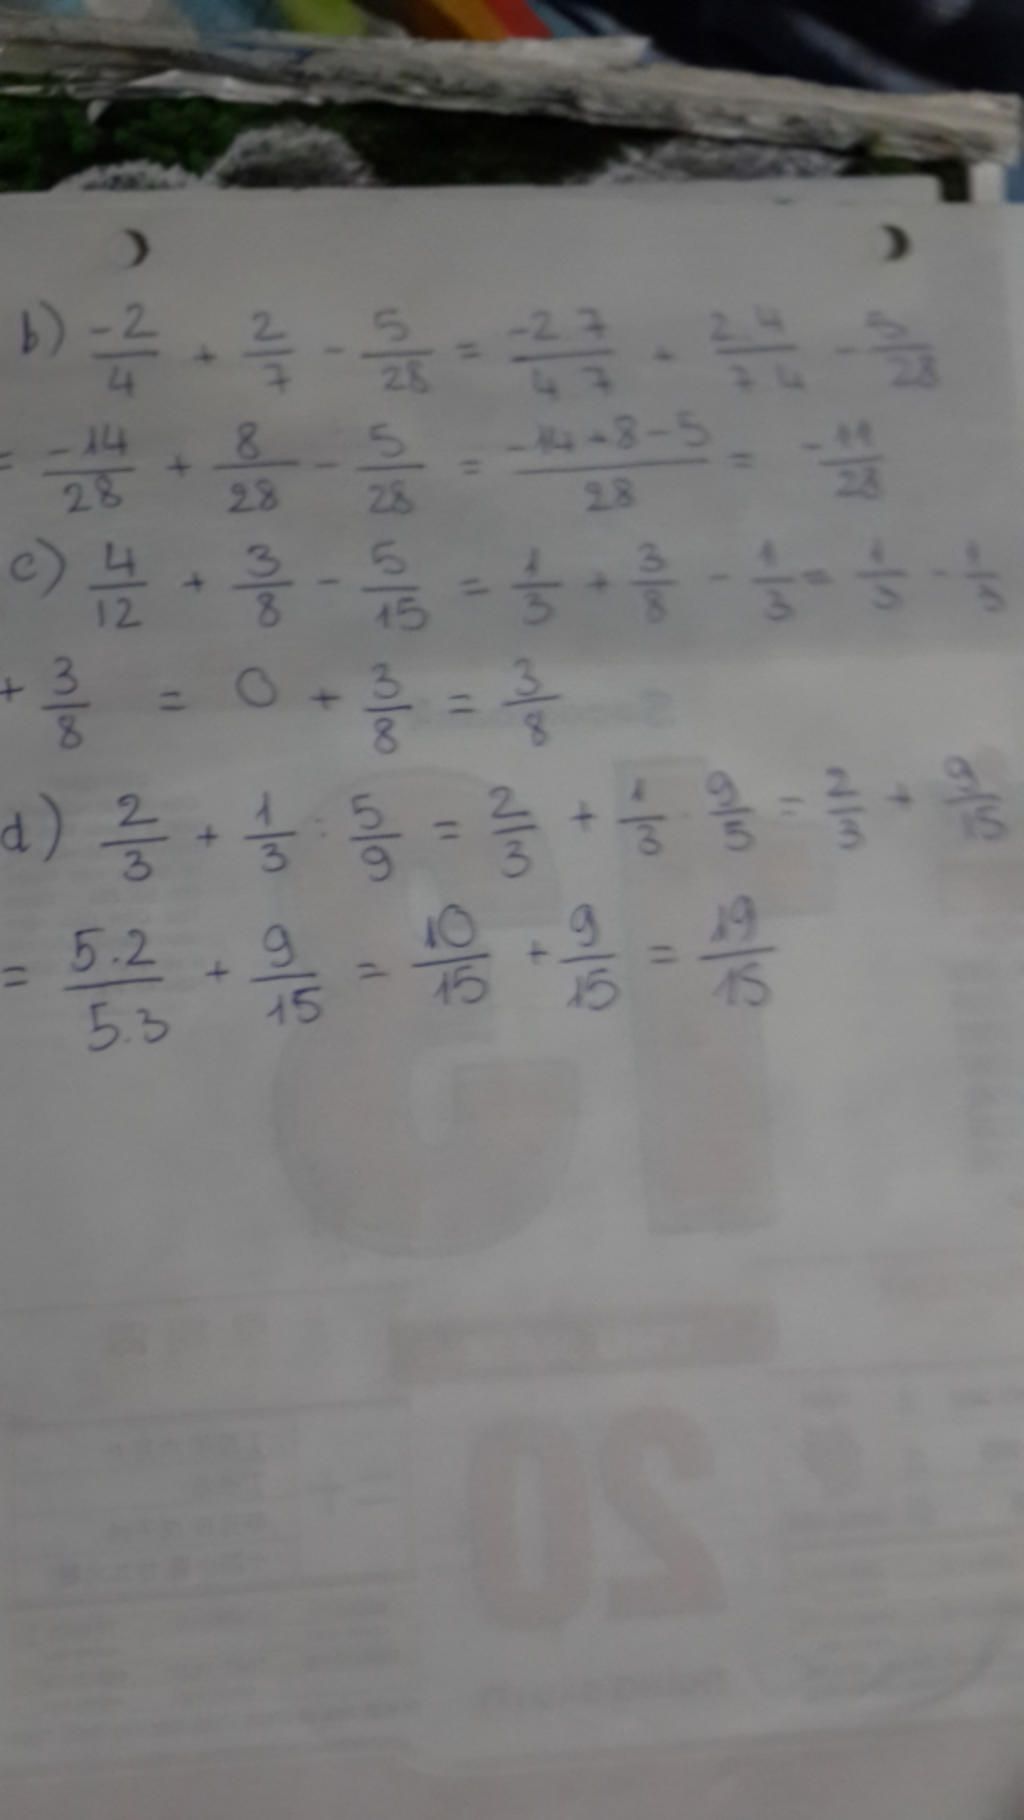 b) -2/4 + 2/7 - 5/28 = -2.7/4.7 + 2.4/7.4 - 5/28
= -14/28 + 8/28 - 5/28 = -14+8-5/28 = -11/28
c) 4/12 + 3/8 - 5/15 = 1/3 + 3/8 - 1/3 = 1/3 - 1/3
+ 3/8 = 0 + 3/8 = 3/8
d) 2/3 + 1/3 : 5/9 = 2/3 + 1/3 . 9/5 = 2/3 + 9/15
= 5.2/5.3 + 9/15 = 10/15 + 9/15 = 19/15
20